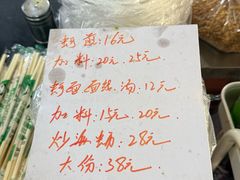 蚵煎:16元
加料:20元.25元.
蚵面面线.汤:12元.
加料:15元.20元.
炒海蛎:28元
大份:38元.